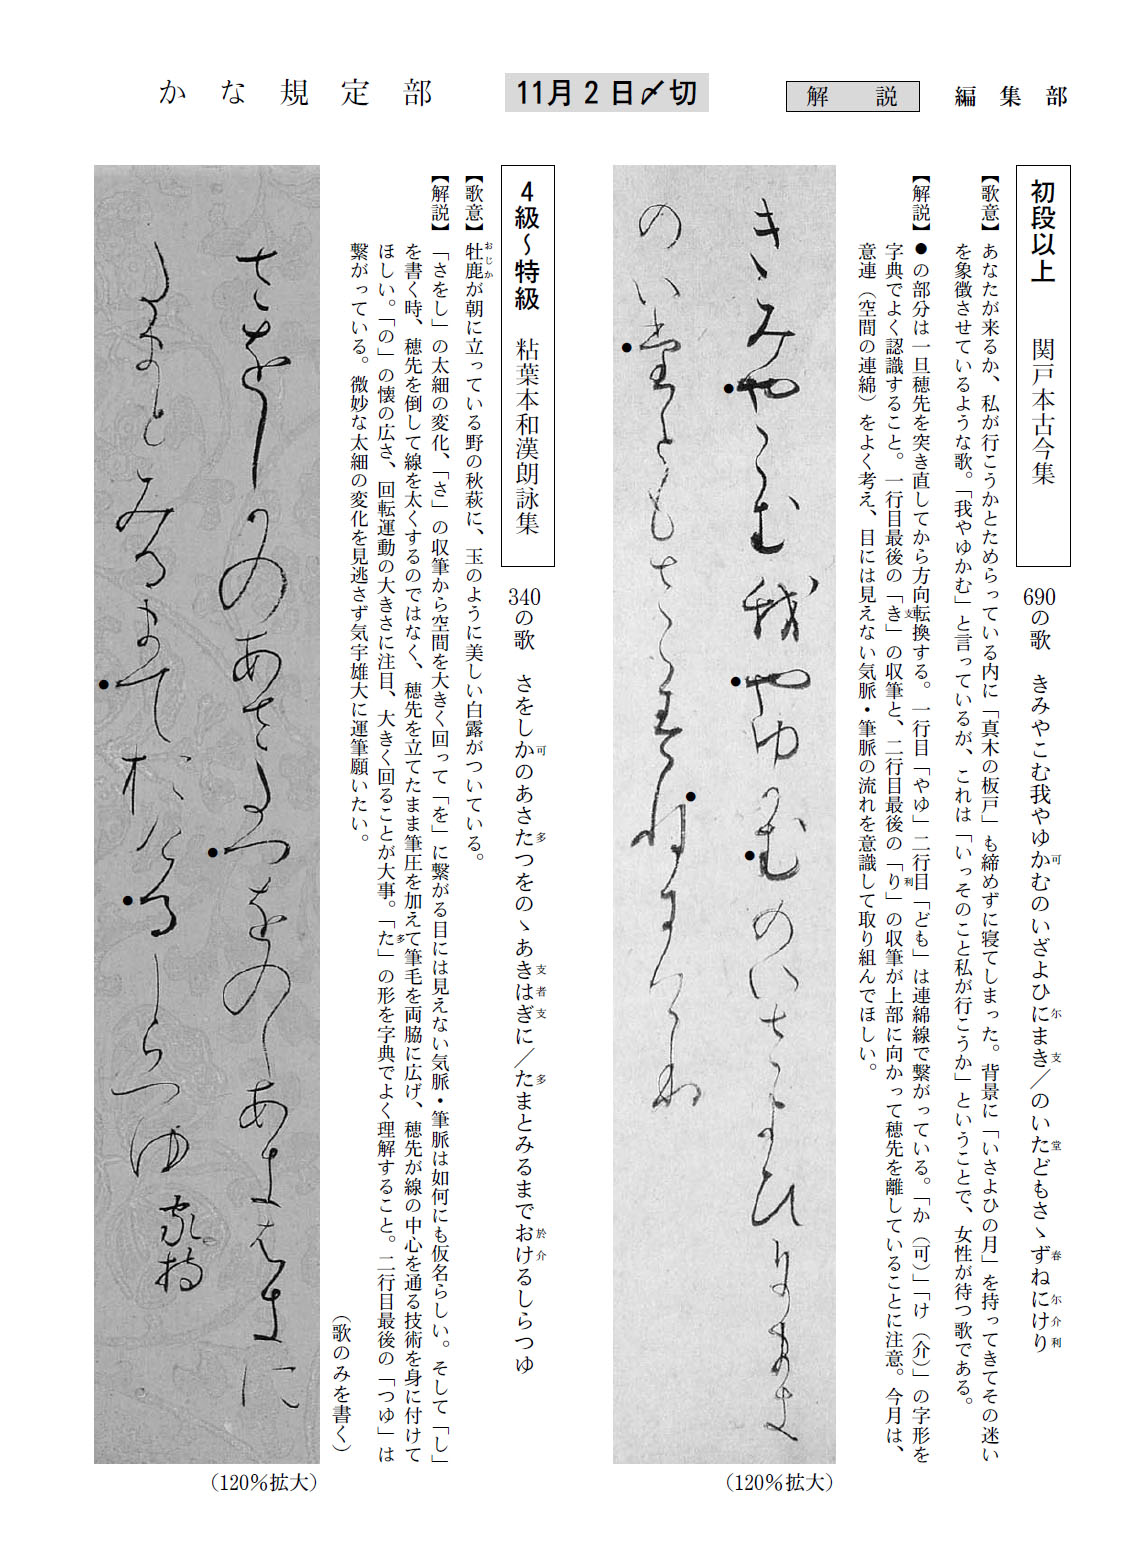 かな規定部
11月2日〆切
解説
編集部
初段以上　関戸本古今集
690の歌　きみやこむ我やゆか可むのいざよひに尓まき支／のいた堂どもさゝず春ねに尓け介り利
【歌意】あなたが来るか、私が行こうかとためらっている内に「真木の板戸」も締めずに寝てしまった。背景に「いさよひの月」を持ってきてその迷い
を象徴させているような歌。「我やゆかむ」と言っているが、これは「いっそのこと私が行こうか」ということで、女性が待つ歌である。
【解説】●の部分は一旦穂先を突き直してから方向転換する。一行目「やゆ」二行目「ども」は連綿線で繋がっている。「か（可）」「け（介）」の字形を
字典でよく認識すること。一行目最後の「き支」の収筆と、二行目最後の「り利」の収筆が上部に向かって穂先を離していることに注意。今月は、
意連（空間の連綿）をよく考え、目には見えない気脈・筆脈の流れを意識して取り組んでほしい。
きみやこむ我やゆかむのいさよひにまき
のいたともさゝすねにけり
（120％拡大）
4級～特級　粘葉本和漢朗詠集
340の歌　さをしか可のあさた多つをのゝあき支は者ぎ支に／た多まとみるまでお於け介るしらつゆ
【歌意】牡鹿おじかが朝に立っている野の秋萩に、玉のように美しい白露がついている。
【解説】「さをし」の太細の変化、「さ」の収筆から空間を大きく回って「を」に繋がる目には見えない気脈・筆脈は如何にも仮名らしい。そして「し」
を書く時、穂先を倒して線を太くするのではなく、穂先を立てたまま筆圧を加えて筆毛を両脇に広げ、穂先が線の中心を通る技術を身に付けて
ほしい。「の」の懐の広さ、回転運動の大きさに注目、大きく回ることが大事。「た多」の形を字典でよく理解すること。二行目最後の「つゆ」は
繋がっている。微妙な太細の変化を見逃さず気宇雄大に運筆願いたい。
（歌のみを書く）
さをしかのあさたつをのゝあきはきに
たまとみるまておけるしらつゆ　家持
（120％拡大）